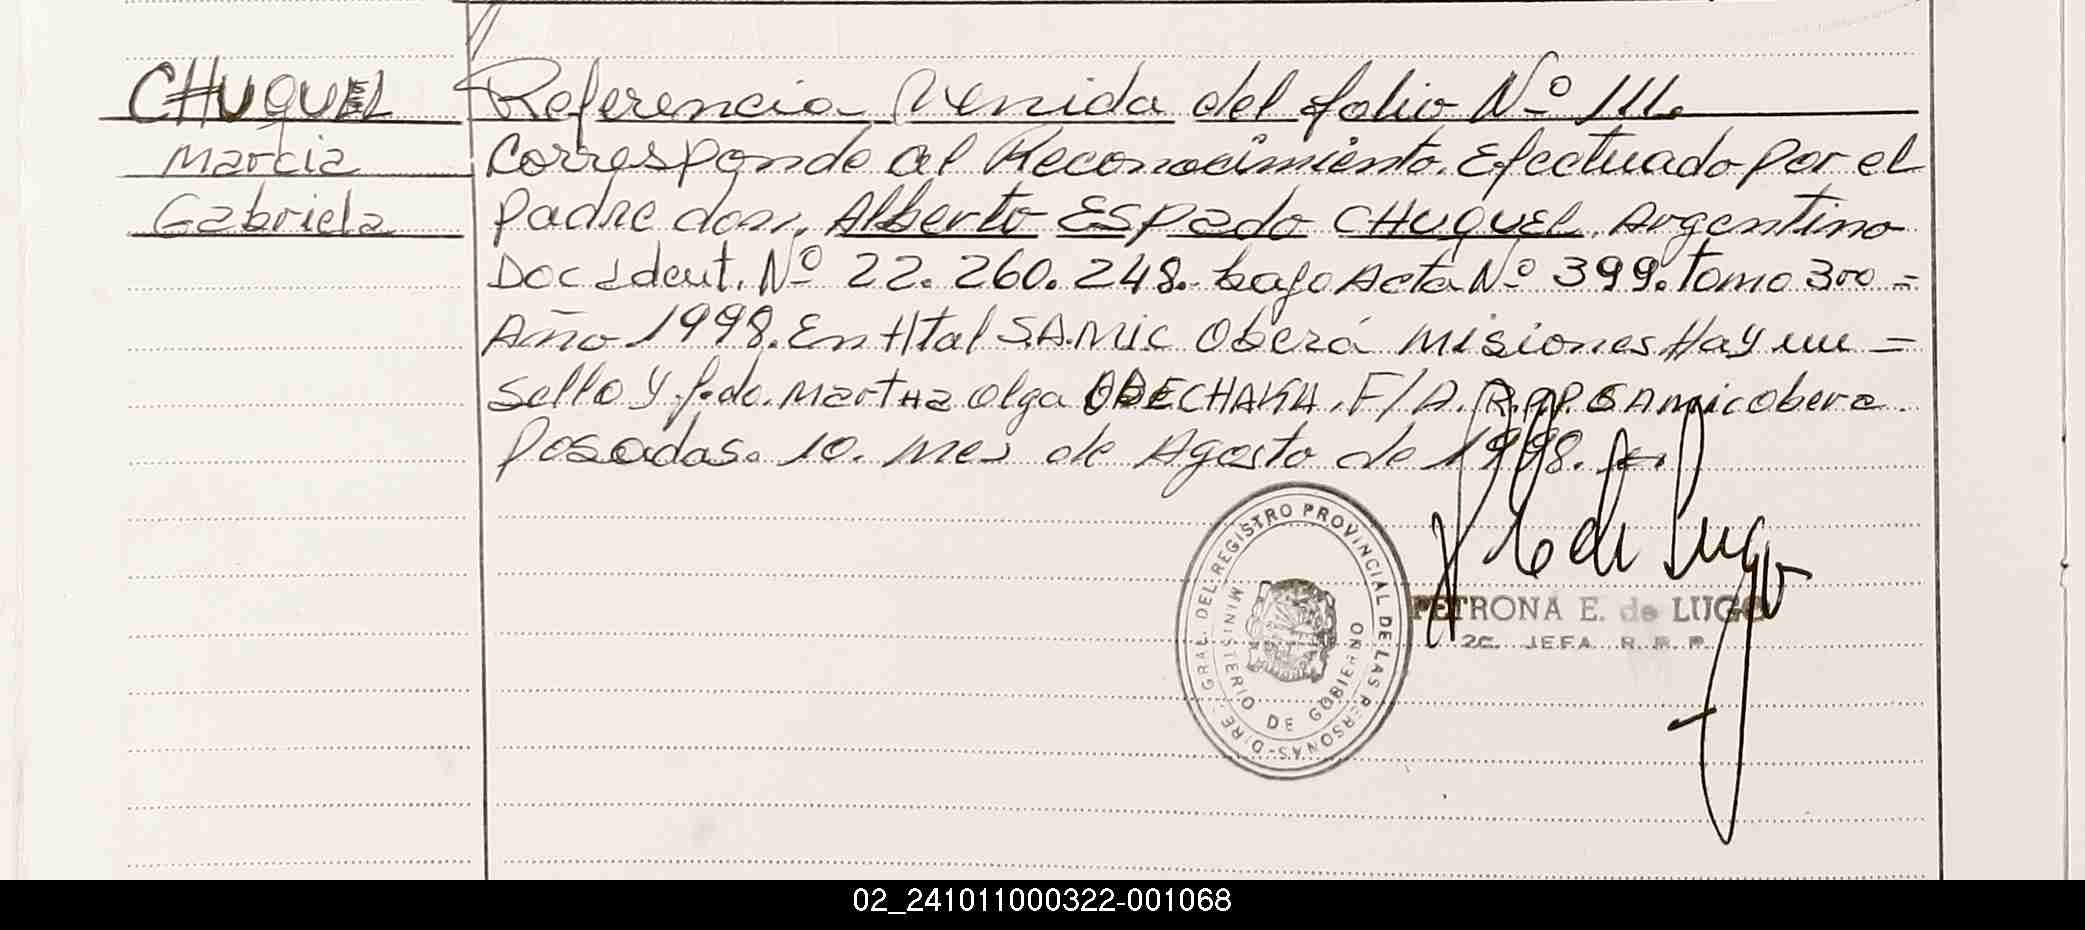 CHUQUEL
Marcia
Gabriela
Referencia Venida del folio Nº 111.
Corresponde al Reconocimiento. Efectuado por el
Padre don. Alberto ESPado CHUQUEL. Argentino
Doc Ident. Nº 22.260.248.- bajo Acta Nº 399. Tomo 300 =
Año 1998. En Htal S.A.Mic Oberá Misiones Hay un =
Sello y fdo. MartHa Olga OBECHAKA. F/A. R.P.P. SAmic obera.
Posadas. 10. mes de Agosto de 1998.
DIRE. GRAL. DEL REGISTRO PROVINCIAL DE LAS PERSONAS-
MINISTERIO DE GOBIERNO
PETRONA E. de LUGO
2C. JEFA R. P. P.
02_241011000322-001068